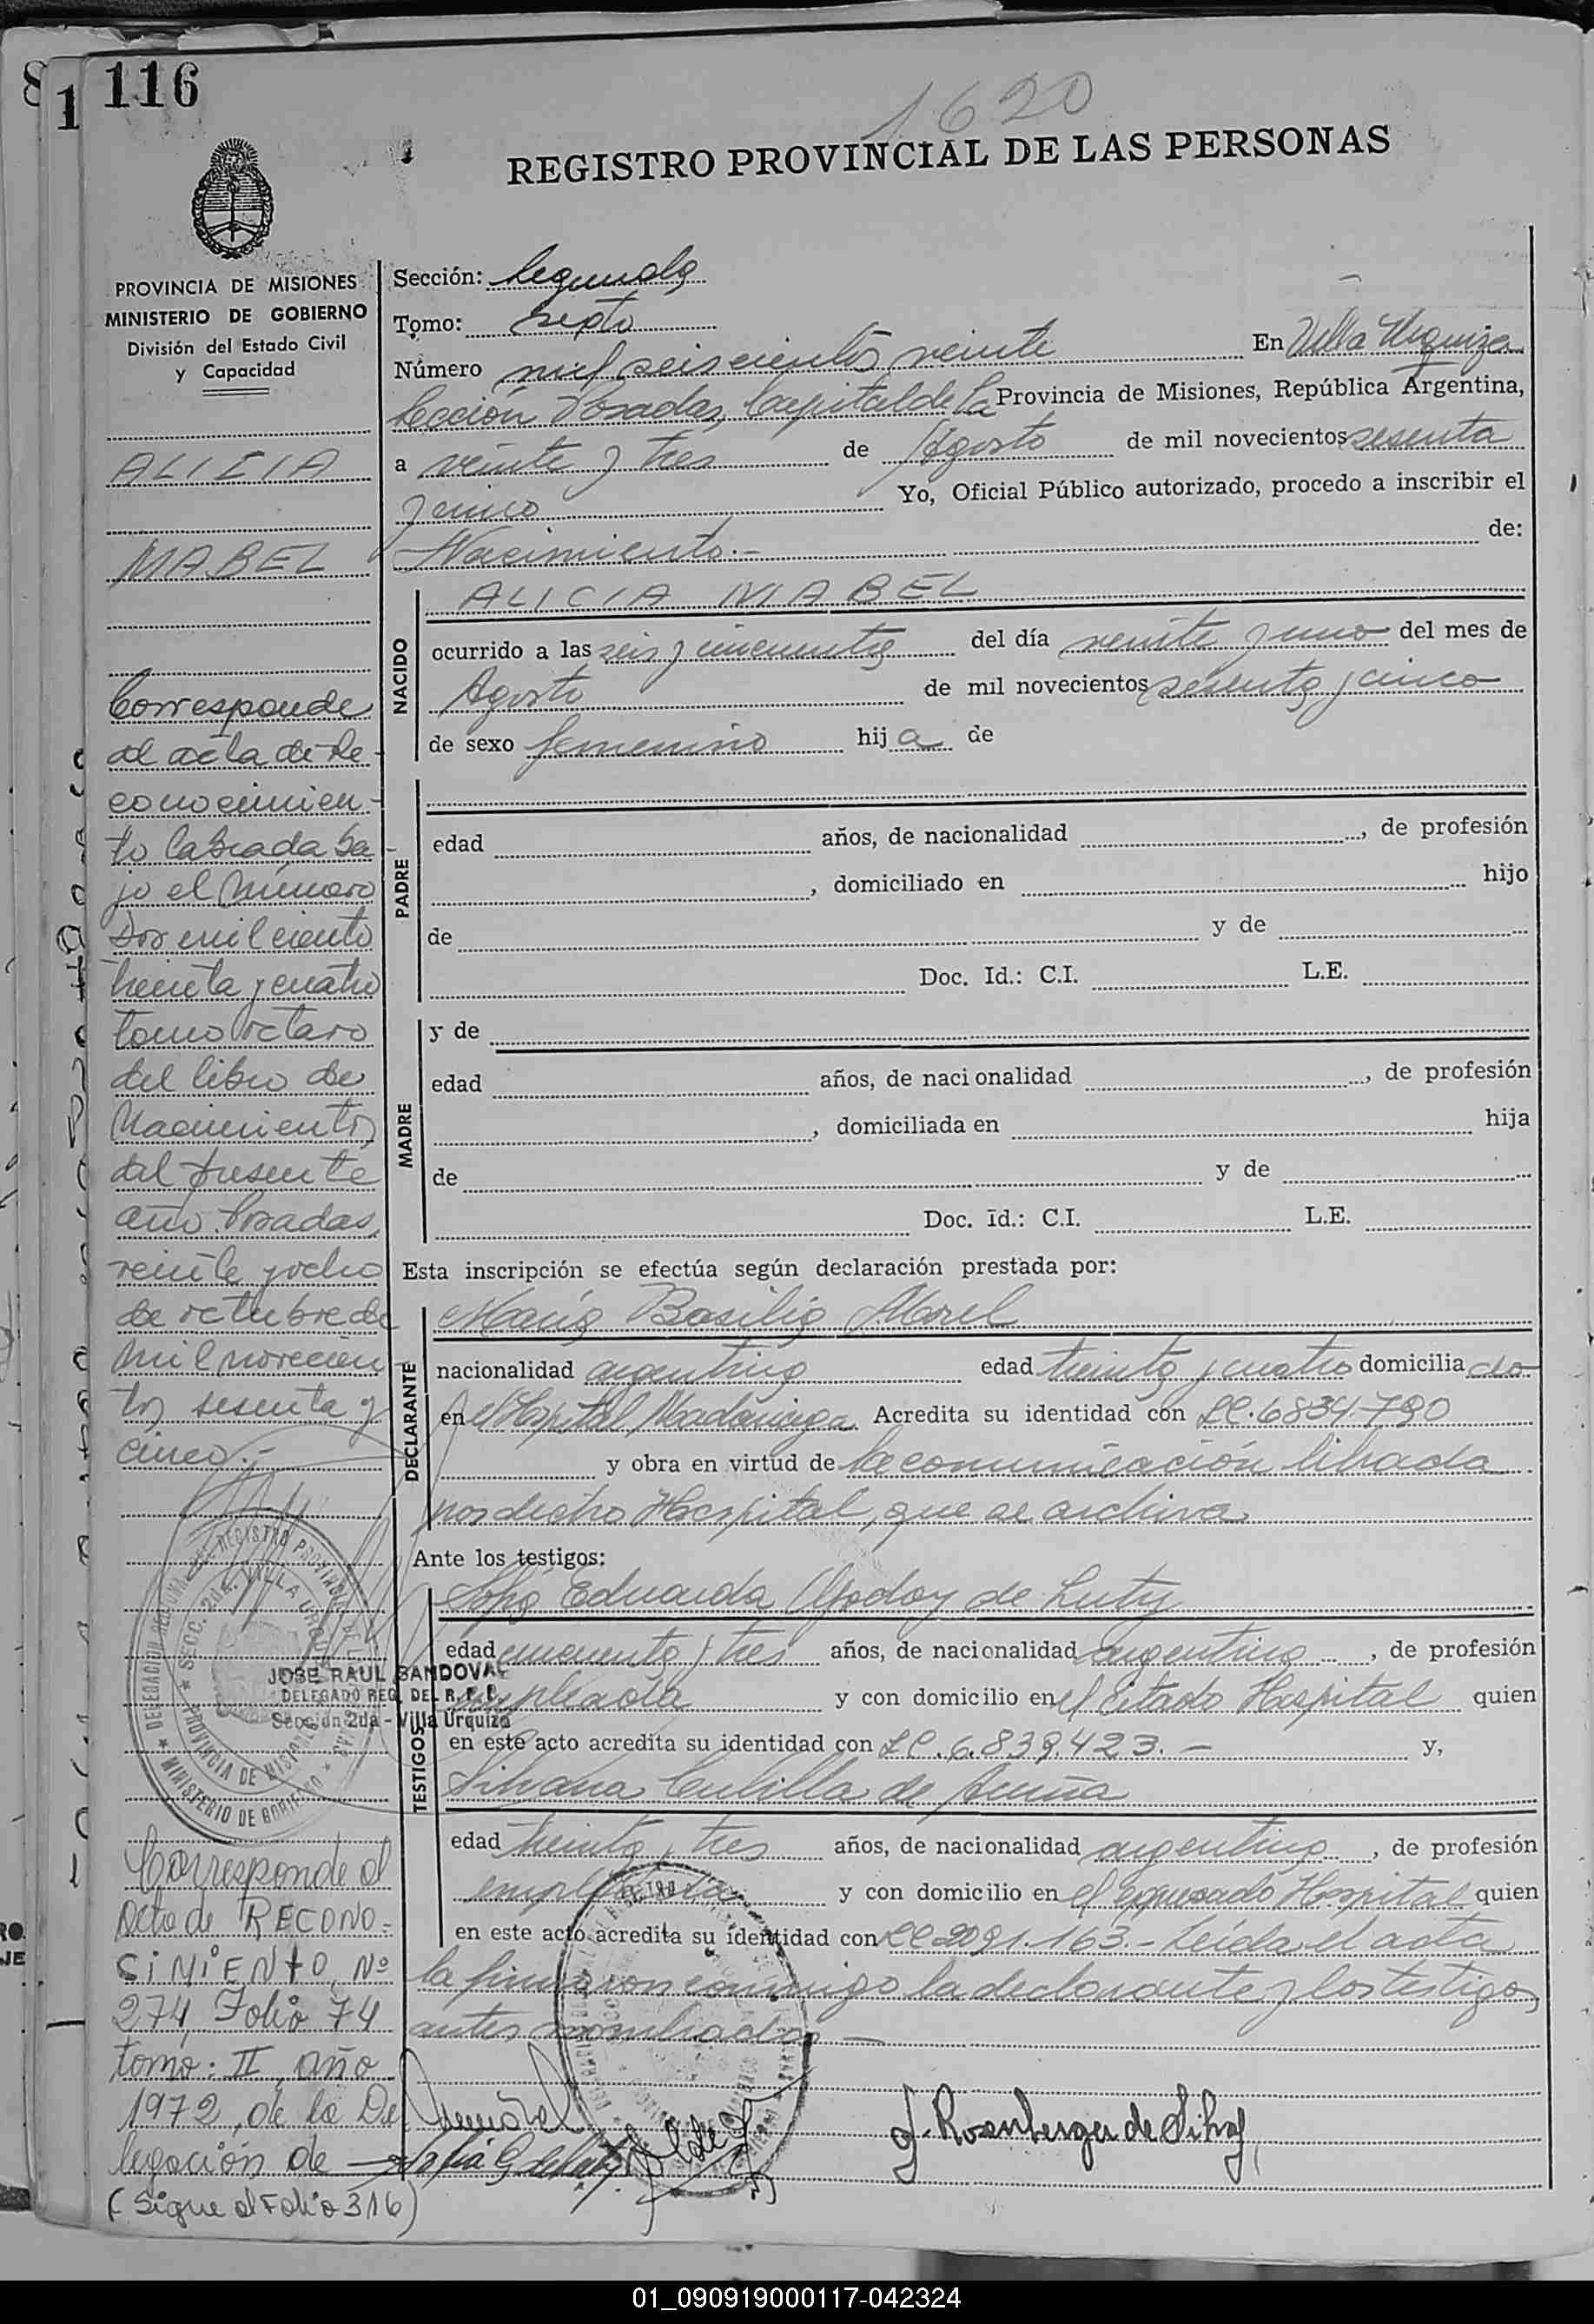 116
1620
REGISTRO PROVINCIAL DE LAS PERSONAS
PROVINCIA DE MISIONES
MINISTERIO DE GOBIERNO
División del Estado Civil
y Capacidad
ALICIA
MABEL
Corresponde
al acta de Re-
conocimien-
to labrada ba-
jo el número
Dos mil ciento
treinta y cuatro
tomo octavo
del libro de
Nacimientos
del presente
año. Posadas,
veinte y ocho
de octubre de
mil novecien
tos sesenta y
cinco.-
JOSE RAUL SANDOVAL
DELEGADO REG. DEL R. P. P.
Sección 2da - Villa Urquiza
Corresponde al
Acta de RECONO=
SIMIENTO, Nº
274, Folio 74
tomo: II, año
1972, de la De
legación de
(Sigue al Folio 316)
Sección: Segunda
Tomo: Septo
Número mil seiscientos veinte En Villa Urquiza
Sección Posadas, Capital de la Provincia de Misiones, República Argentina,
a veinte y tres de Agosto de mil novecientos sesenta
y cinco Yo, Oficial Público autorizado, procedo a inscribir el
Nacimiento.- de:
NACIDO
ALICIA MABEL
ocurrido a las seis y cincuenta del día veinte y uno del mes de
Agosto de mil novecientos sesenta y cinco
de sexo femenino hija de
PADRE
edad años, de nacionalidad , de profesión
, domiciliado en hijo
de y de
Doc. Id.: C.I. L.E.
MADRE
y de
edad años, de nacionalidad , de profesión
, domiciliada en hija
de y de
Doc. Id.: C.I. L.E.
Esta inscripción se efectúa según declaración prestada por:
DECLARANTE
María Basilia Morel
nacionalidad argentina edad treinta y cuatro domiciliada
en el Hospital Madariaga. Acredita su identidad con LC.6834.790
y obra en virtud de la comunicación librada
por dicho Hospital, que se archiva
Ante los testigos:
TESTIGOS
Eduarda Godoy de
edad cincuenta y tres años, de nacionalidad argentina , de profesión
empleada y con domicilio en el citado Hospital quien
en este acto acredita su identidad con LC.6.839.423.- y,
Silvana de Acuña
edad treinta y tres años, de nacionalidad argentina , de profesión
empleada y con domicilio en el expresado Hospital quien
en este acto acredita su identidad con LC 2091.163.- Leída el acta
la firmaron conmigo la declarante y los testigos
antes nombrados -
J. Rosenberger de Silva
01_090919000117-042324